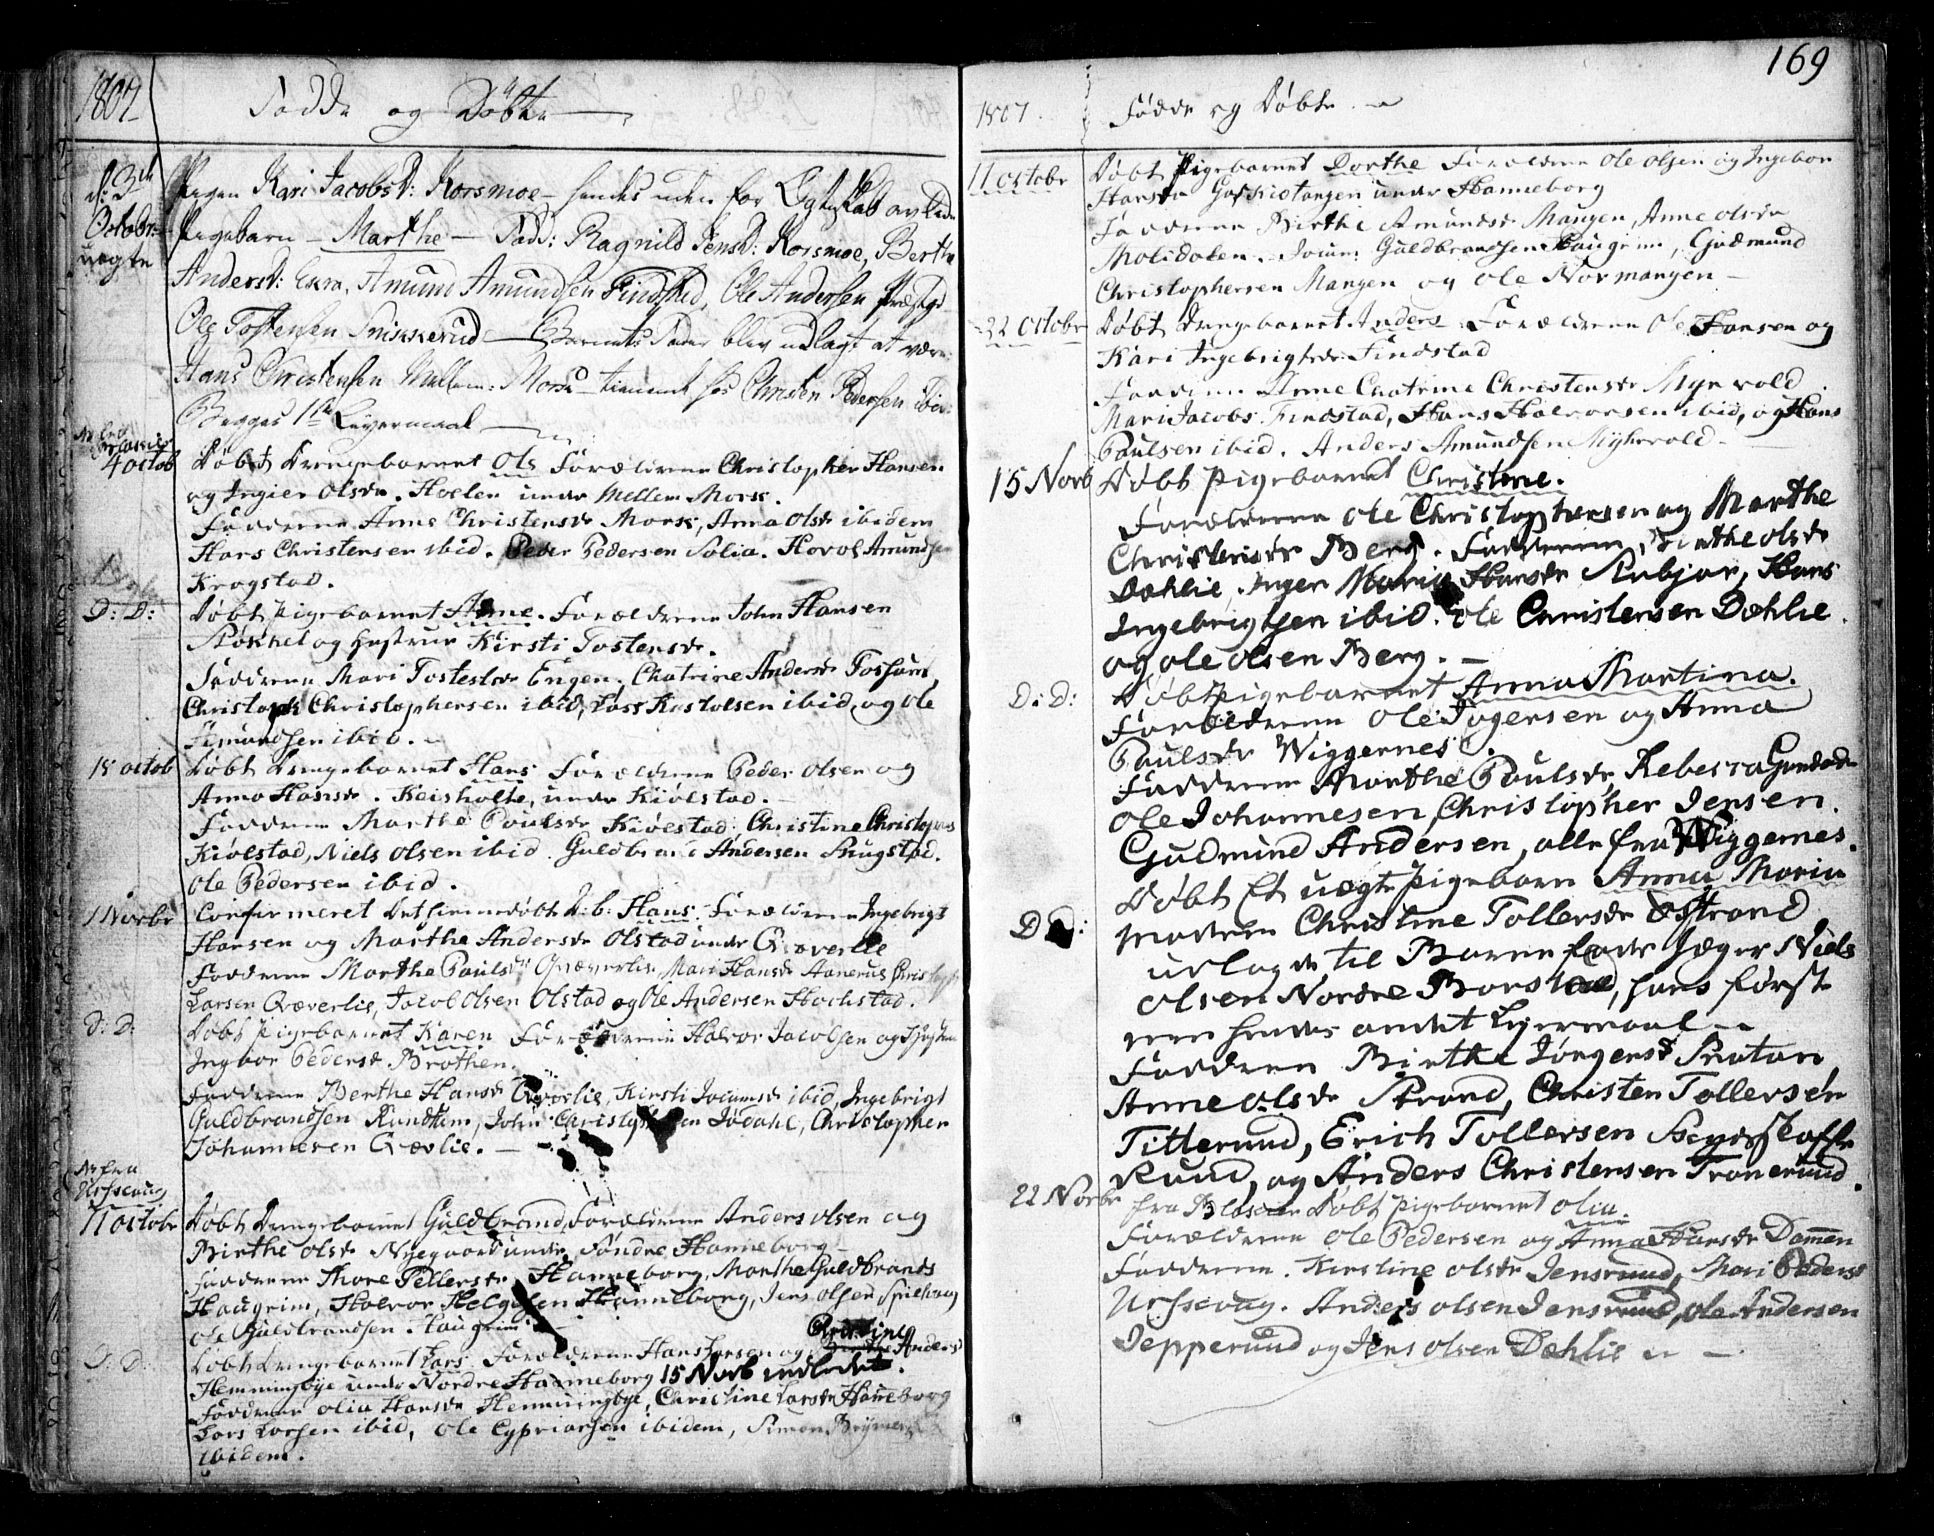 1807
Fødde og Døbte
d: 3de
Octobr:
uægte
Pigen Kari Jacobsd: Korsmoe hendes uden for Egteskab avlede
Pigebarn Marthe Fadd: Ragnild Jensd: Korsmoe, Berthe
Andersd: Amund Amundsen Findstad, Ole Andersen
Ole Tostensen Snikkerud Barnets Fader blev udlagt at være
Hans Christensen Mellem: Mors tienende hos Christen Pedersen ibid:
Begges 1ste Leyermaal
4 octob
Døbt Drengebarnet Ole Forældrene Christopher Hansen
og Ingier Olsdr. Hoelen under Mellem Mork.
Fadderne Anne Christensdr Mork, Anna Olsdr ibidem
Hans Christensen ibid. Peder Pedersen Solia. Hovol Amundsen
Krogstad.
D: D:
Døbt Pigebarnet Anne. Forældrene John Hansen
Støkket og Hustrue Kirsti Tostensdr.
Fadderne Mari Tostesdr Engen. Chatrine Andersdr Fossum,
Christoph Christophersen ibid, Lars Kostolsen ibid, og Ole
Amundsen ibid.
18 octob
Døbt Drengebarnet Hans Forældrene Peder Olsen og
Anna Hansdr. Keisholte, under Kiølstad.
Fadderne Marthe Poulsdr Kiølstad, Christine Christophers
Kiølstad, Niels Olsen ibid. Guldbrand Andersen Rugstad.
Ole Pedersen ibid.
1 Norbr
Confirmeret Det hiemmedøbte D: b: Hans. Forældrene Ingebrigt
Hansen og Marthe Andersdr Olstad under Qvæverlie
Fadderne Marthe Poulsdr Qvæverlie, Mari Hansdr Aanerud
Larsen Qvæverlie, Jacob Olsen Olstad og Ole Andersen Hochstad.
D: D:
Døbt Pigebarnet Karen Forældrene Halvor Jacobsen og Hustrue
Ingbor Pedersdr Brothen.
Fadderne Berthe Hansdr Qvæverlie, Kirsti Joramsdr ibid, Ingebrigt
Guldbrandsen Rundtom, John Jødahl, Christopher
Johannesen Qvævlie.
Ao fra
Urskoug
11 octobr
Døbt Drengebarnet Guldbrand Forældrene Anders Olsen og
Birthe Olsdr Nyegaard under Søndre Hanneborg
Fadderne Thore Pellersdr Hanneborg, Marthe Guldbrands
Haugrim, Halvor Helgesen Hanneborg, Jens Olsen Spillhaug
Ole Guldbrandsen Haugrim
D: D:
Døbt Drengebarnet Lars Forældrene Hans Larsen og Christine Anders
Hemmingbye under Nordre Hanneborg 15 Novb indledet.
Fadderne Olia Hansdr Hemmingbye, Christine Larsdr Hanneborg
Lars Larsen ibid, Ole Cypriansen ibidem, Simon
ibidem.
169
1807.
Fødde og Døbte
11 octobr
Døbt Pigebarnet Dorthe Forældrene Ole Olsen og Ingebor
Hansdr under Hanneborg
Fadderne Birthe Amundsdr Mangen, Anne Olsdr
Molidalen. Guldbrandsen Haugrim, Gudmund
Christophersen Mangen og Ole Normangen
22 octobr
Døbt Drengebarnet Anders Forældrene Ole Hansen og
Kari Ingebrigtsdr Findstad
Fadderne Anne Chatrine Christensdr Myrvold
Mari Jacobs. Findstad, Hans Halvorsen ibid, og Hans
Poulsen ibid. Anders Amundsen Myhrvold
15 Norb
Døbt Pigebarnet Christene.
Forældrene Ole Christophersen og Marthe
Christensdr Berg. Fadderne, Birthe Olsdr
Dæhlie, Inger Maria Hansdr Hans
Ingebrigtsen ibid. Ole Christensen Dæhlie.
og Ole Olsen Berg.
D: D:
Døbt Pigebarnet Anna Martina.
Forældrene Ole Jogensen og Anna
Poulsdr Wiggernes.
Fadderne Marthe Poulsdr Rebecca
Ole Johannesen, Christopher Jensen.
Gudmund Andersen, alle fra Wiggernes.
D D:
Døbt Et uægte Pigebarn Anna Maria
Moderen Christine Tollersdr Østrand
udlagde til Barnefader Jæger Niels
Olsen Nordre Borstad, hans første
men hendes andet Lejermaal
Fadderne Birthe Jørgensd
Anne Olsdr Strand, Christen Tollersen
Titterud, Erich Tollersen
Rund, og Anders Christensen Tronerud.
22 Norbr
fra Døbt Pigebarnet Olia.
Forældrene Ole Pedersen og Anna Hansdr Dammen
Fadderne. Kirstine Olsdr Jensrud, Mari Pedersd
Urssevug. Anders Olsen Jensrud, Ole Andersen
Jepperud og Jens Olsen Dæhlie